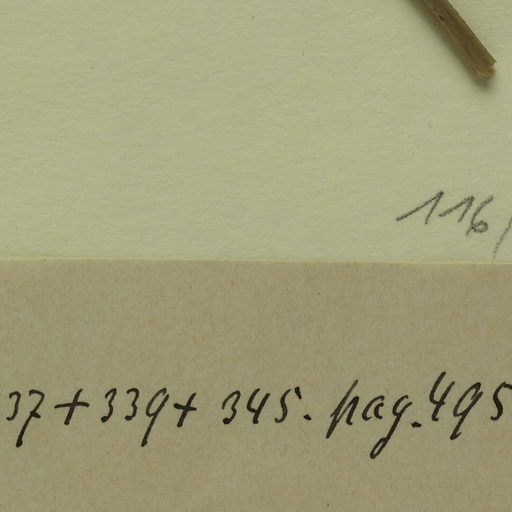 116/
37 + 339 + 345. pag. 495